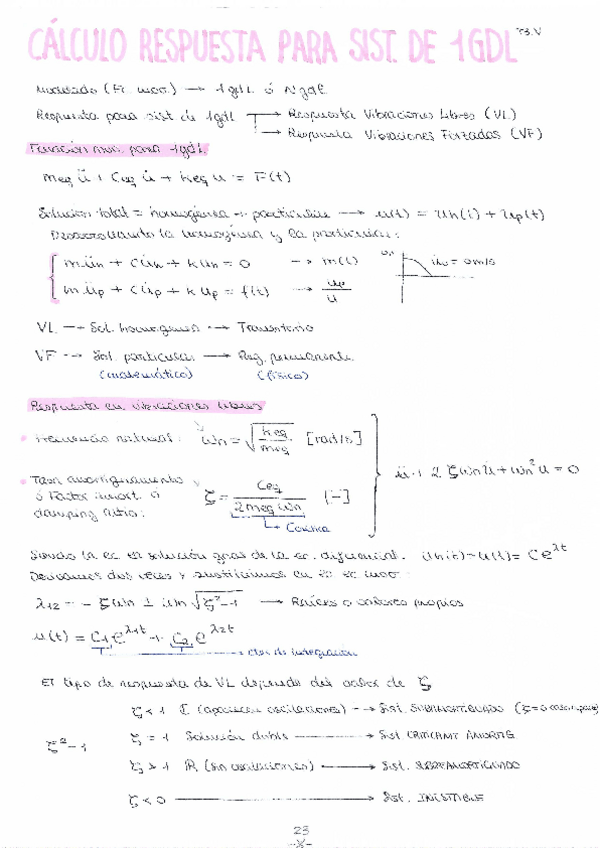 CÁLCULO RESPUESTA PARA SIST. DE 1GDL T3.V
Modelado (Ec. mov.) → 1gdl ó Ngdl
Respuesta para sist de 1gdl → Respuesta Vibraciones Libres (VL)
→ Respuesta Vibraciones Forzadas (VF)
Ecuación mov. para 1gdl.
meq ü + Ceq u̇ + keq u = F(t)
Solución total = homogénea + particular → u(t) = uh(t) + up(t)
Desarrollando la homogénea y la particular:
m üh + c u̇h + k uh = 0
m üp + c u̇p + k up = f(t)
VL → Sol. homogénea → Transitorio
VF → Sol. particular → Reg. permanente
(matemático) (físico)
Respuesta en vibraciones libres
Frecuencia natural: ωn = √(keq/meq) [rad/s]
Tasa amortiguamiento
ó Factor amort. o
damping ratio:
ζ = Ceq/(2 meq ωn) [-]
ü + 2 ζ ωn u̇ + ωn² u = 0
Siendo la ec. la solución gral. de la ec. diferencial. uh(t) = u(t) = C e^λt
Derivamos dos veces y sustituimos en la ec mov:
λ12 = - ζωn ± ωn √(ζ²-1) → Raíces o valores propios
u(t) = C1 e^λ1t + C2 e^λ2t
ctes de integración
El tipo de respuesta de VL depende del valor de ζ
ζ²-1
ζ < 1 ℂ (aparecen oscilaciones) → Sist. SUBAMORTIGUADO
ζ = 1 Solución doble → Sist CRÍTICAMT AMORTIG
ζ > 1 ℝ (sin oscilaciones) → Sist. SOBREAMORTIGUADO
ζ < 0 → Sist. INESTABLE
23